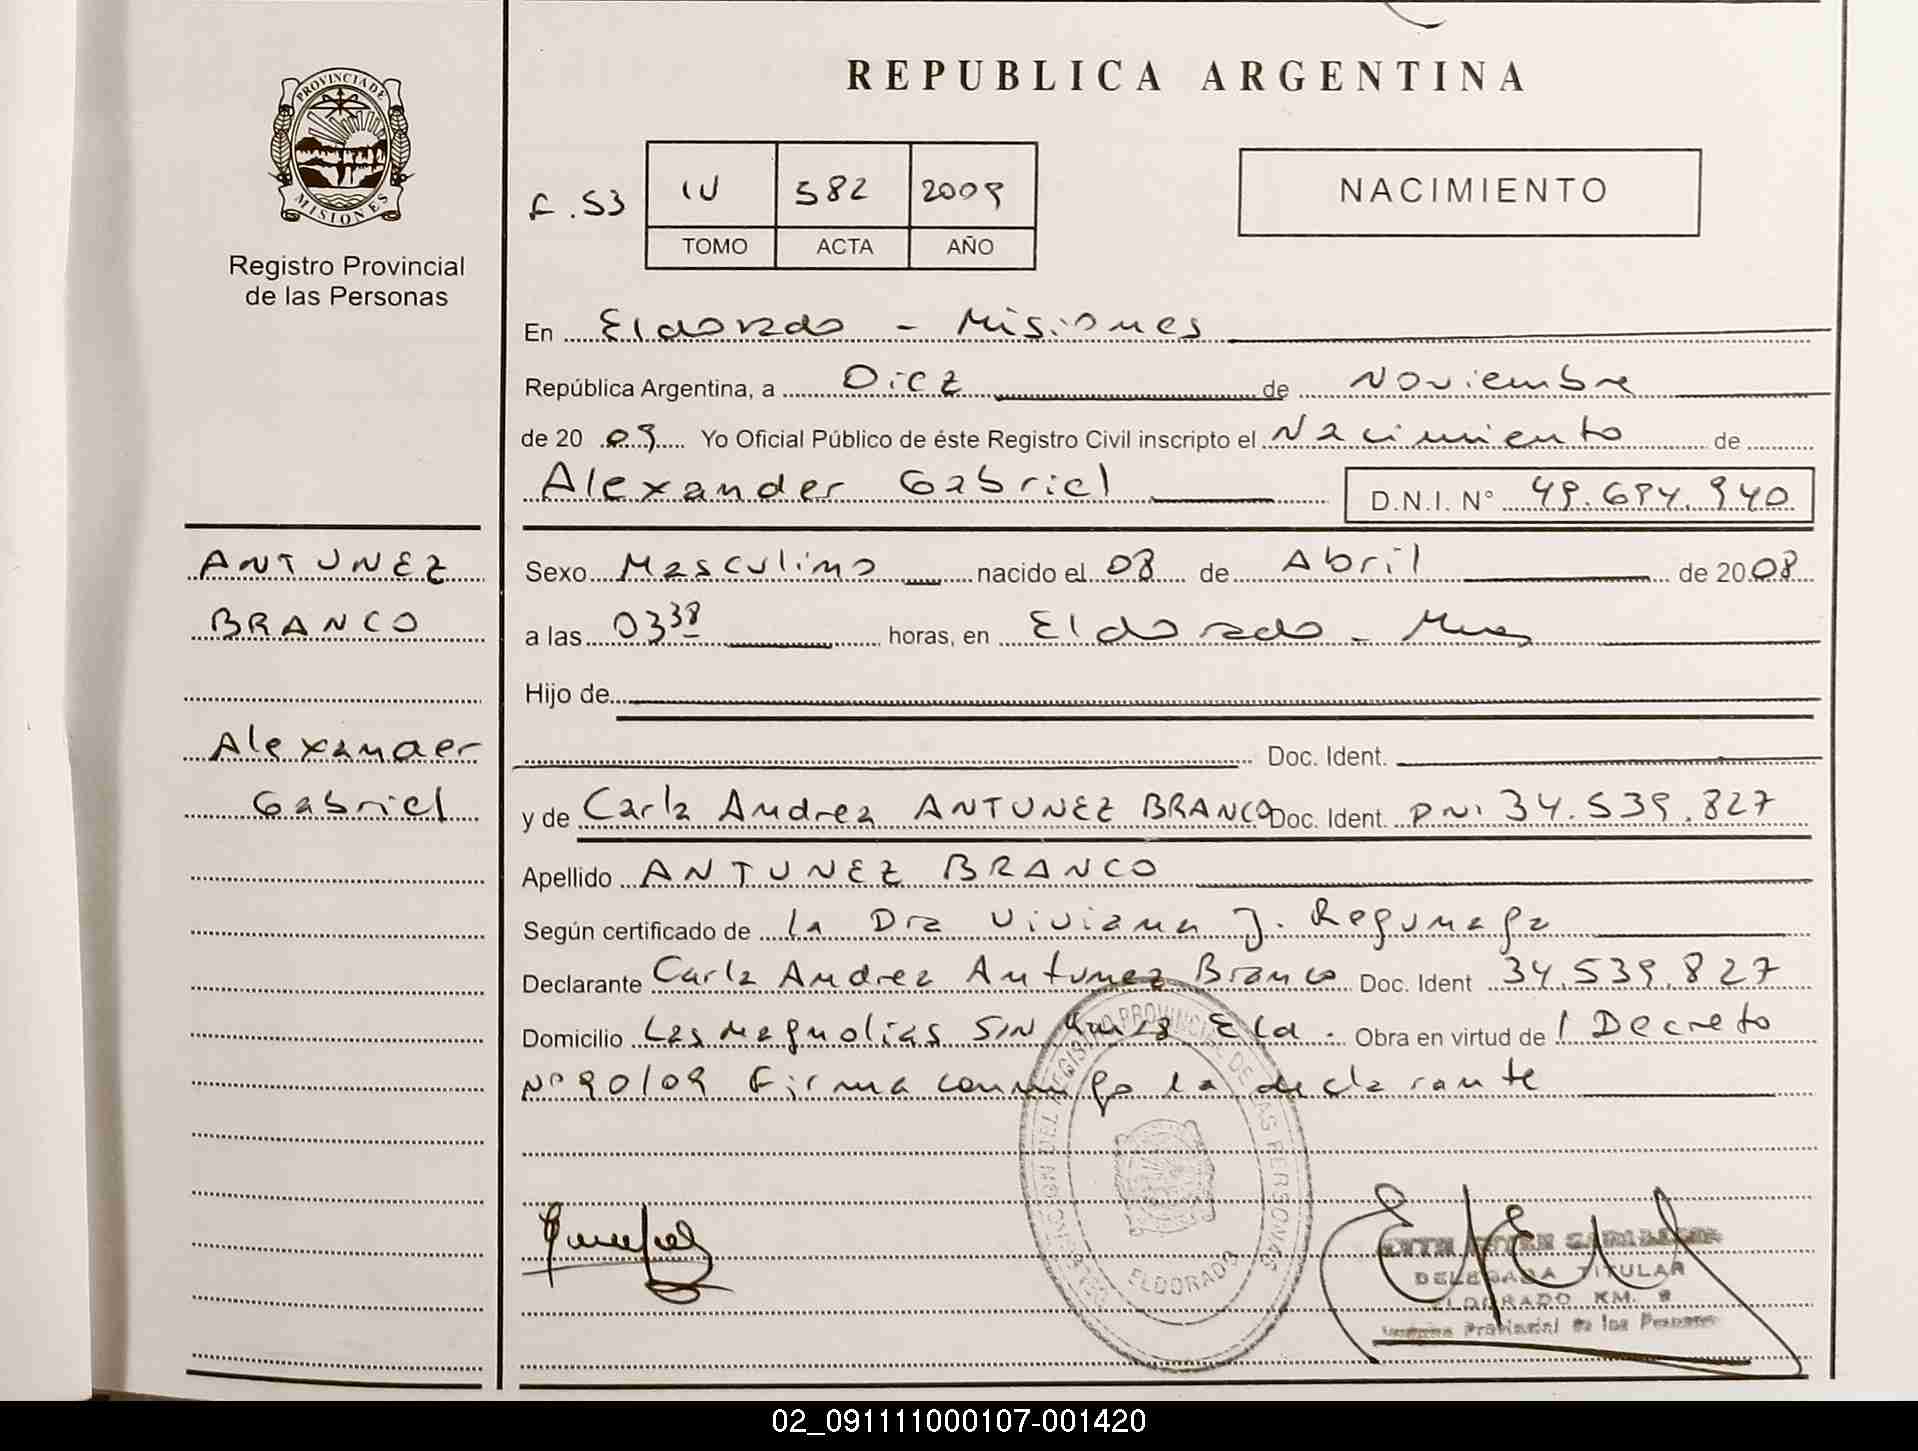 PROVINCIA DE
MISIONES
Registro Provincial
de las Personas
REPUBLICA ARGENTINA
F. 53 IV 582 2009
TOMO ACTA AÑO
NACIMIENTO
En Eldorado - Misiones
República Argentina, a Diez de Noviembre
de 20 09 Yo Oficial Público de éste Registro Civil inscripto el Nacimiento de
Alexander Gabriel D.N.I. N° 49.694.940
ANTUNEZ
BRANCO
Alexander
Gabriel
Sexo Masculino nacido el 08 de Abril de 2008
a las 03 38 horas, en Eldorado - Mnes
Hijo de
Doc. Ident.
y de Carla Andrea ANTUNEZ BRANCO Doc. Ident. DNI 34.539.827
Apellido ANTUNEZ BRANCO
Según certificado de la Dra Viviana J. Regunaga
Declarante Carla Andrea Antunez Branco Doc. Ident 34.539.827
Domicilio Las Magnolias S/N Eld. Obra en virtud de l Decreto
N° 90/09 Firma conmigo la declarante
REGISTRO PROVINCIAL DE LAS PERSONAS
ELDORADO
DELEGADA TITULAR
ELDORADO KM. 9
Provincial de las Personas
02_091111000107-001420